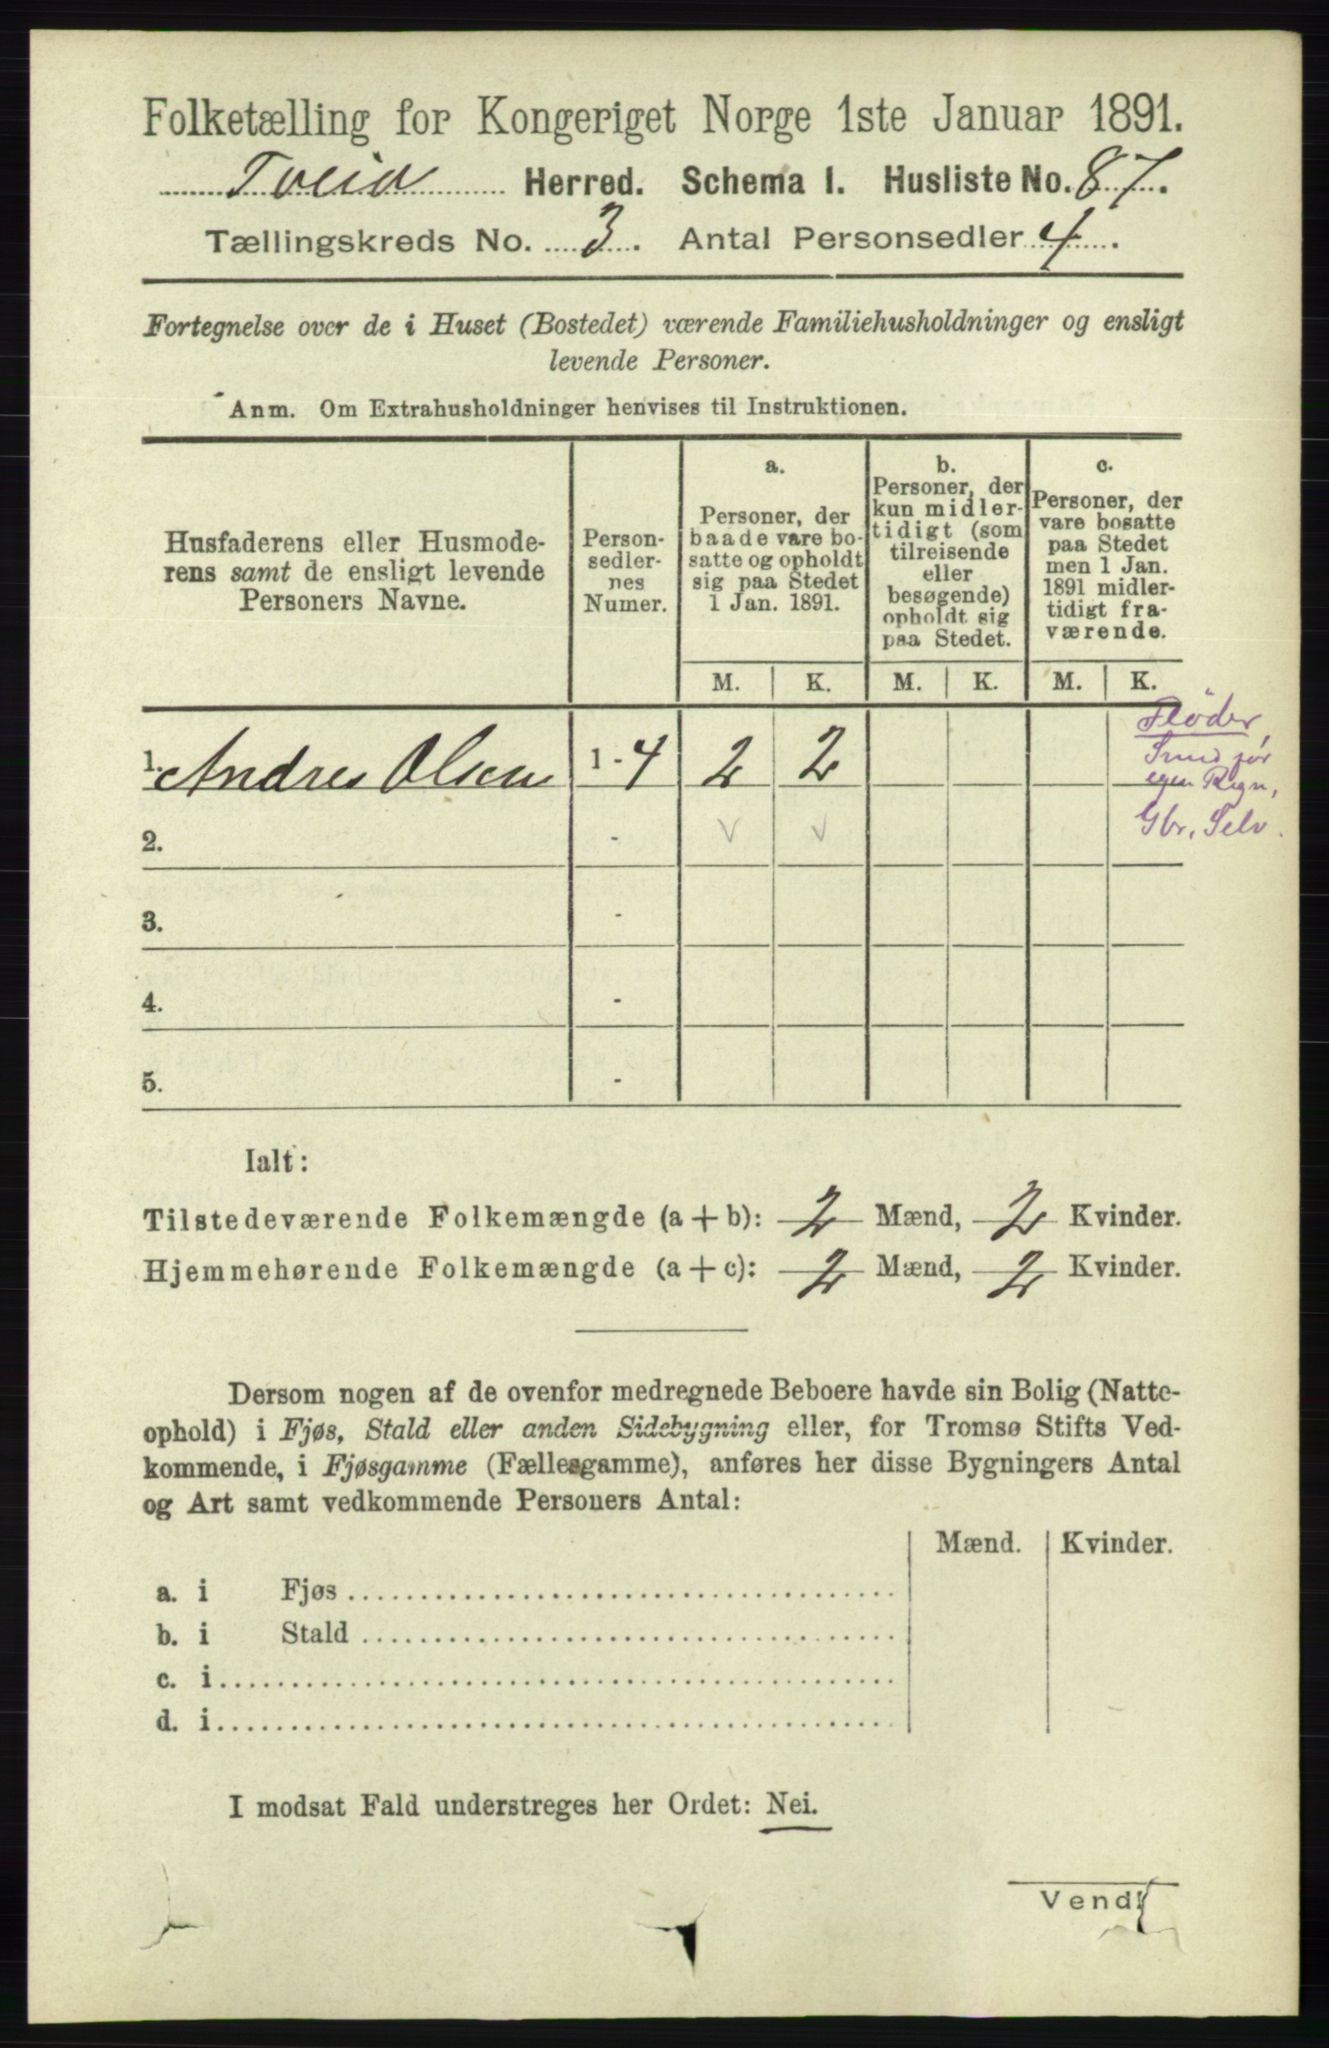 Folketælling for Kongeriget Norge 1ste Januar 1891.
Tveid Herred. Schema 1. Husliste No. 87.
Tællingskreds No. 3. Antal Personsedler 4.
Fortegnelse over de i Huset (Bostedet) værende Familiehusholdninger og ensligt
levende Personer.
Anm. Om Extrahusholdninger henvises til Instruktionen.
Husfaderens eller Husmode-
rens samt de ensligt levende
Personers Navne.
Person-
sedler-
nes
Numer.
a.
Personer, der
baade vare bo-
satte og opholdt
sig paa Stedet
1 Jan. 1891.
b.
Personer, der
kun midler-
tidigt (som
tilreisende
eller
besøgende)
opholdt sig
paa Stedet.
c.
Personer, der
vare bosatte
paa Stedet
men 1 Jan.
1891 midler-
tidigt fra-
værende.
M. K. M. K. M. K.
1. Andres Olsen 1 - 4 2 2
Fløder,
Smed for
egen Regn,
Gbr, Selv.
2. - v v
3. -
4. -
5. -
Ialt:
Tilstedeværende Folkemængde (a + b): 2 Mænd, 2 Kvinder.
Hjemmehørende Folkemængde (a + c): 2 Mænd, 2 Kvinder.
Dersom nogen af de ovenfor medregnede Beboere havde sin Bolig (Natte-
ophold) i Fjøs, Stald eller anden Sidebygning eller, for Tromsø Stifts Ved-
kommende, i Fjøsgamme (Fællesgamme), anføres her disse Bygningers Antal
og Art samt vedkommende Personers Antal:
Mænd. Kvinder.
a. i Fjøs
b. i Stald
c. i
d. i
I modsat Fald understreges her Ordet: Nei.
Vend!